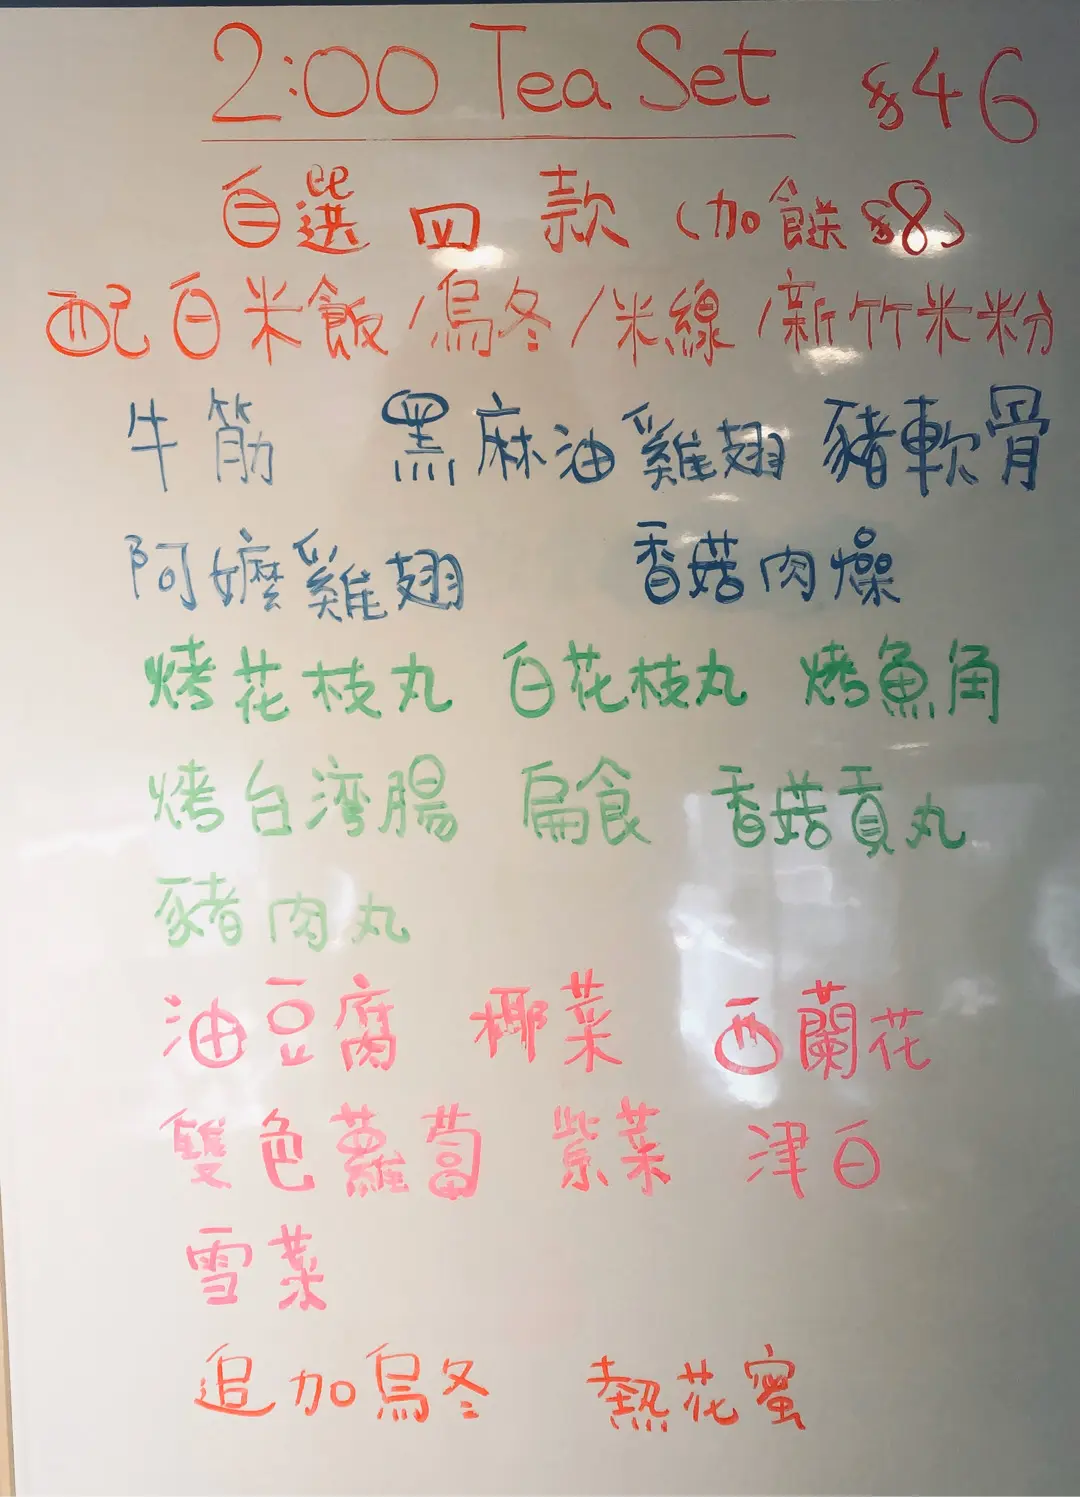 2:00 Tea Set $46
自選四款（加餸$8）
配白米飯/烏冬/米線/新竹米粉
牛筋 黑麻油雞翅 豬軟骨
阿嬤雞翅 香菇肉燥
烤花枝丸 白花枝丸 烤魚角
烤台湾腸 扁食 香菇貢丸
豬肉丸
油豆腐 椰菜 西蘭花
雙色蘿蔔 紫菜 津白
雪菜
追加烏冬 熱花蜜